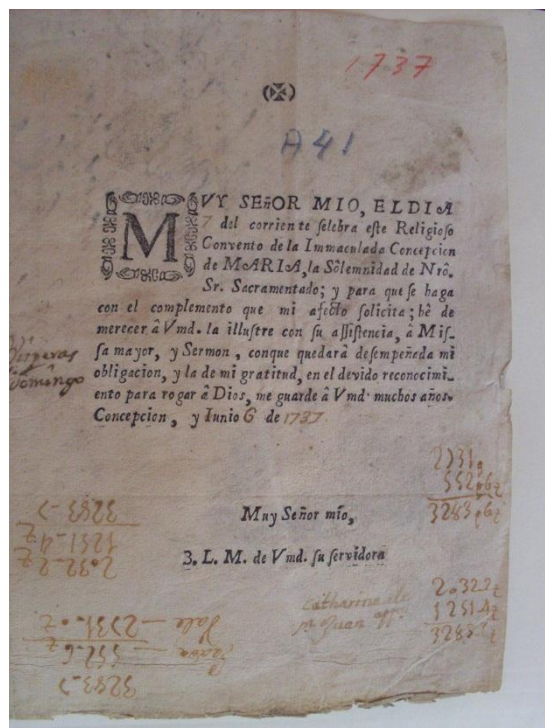 1737
A41
MVY SEñOR MIO, EL DIA
7 del corriente selebra este Religioso
Convento de la Immaculada Concepcion
de MARIA, la Sôlemnidad de Nrô.
Sr. Sacramentado; y para que se haga
con el complemento que mi afecto solicita; hè de
merecer â Vmd. la illustre con su assistencia, â Mis-
sa mayor, y Sermon, conque quedarà desempeñada mi
obligacion, y la de mi gratitud, en el devido reconocimi-
ento para rogar â Dios, me guarde â Vmd. muchos años.
Concepcion, y Iunio 6 de 1737
Visperas
domingo
Muy Señor mío,
B. L. M. de Vmd. su servidora
Catharina de
Sn Juan